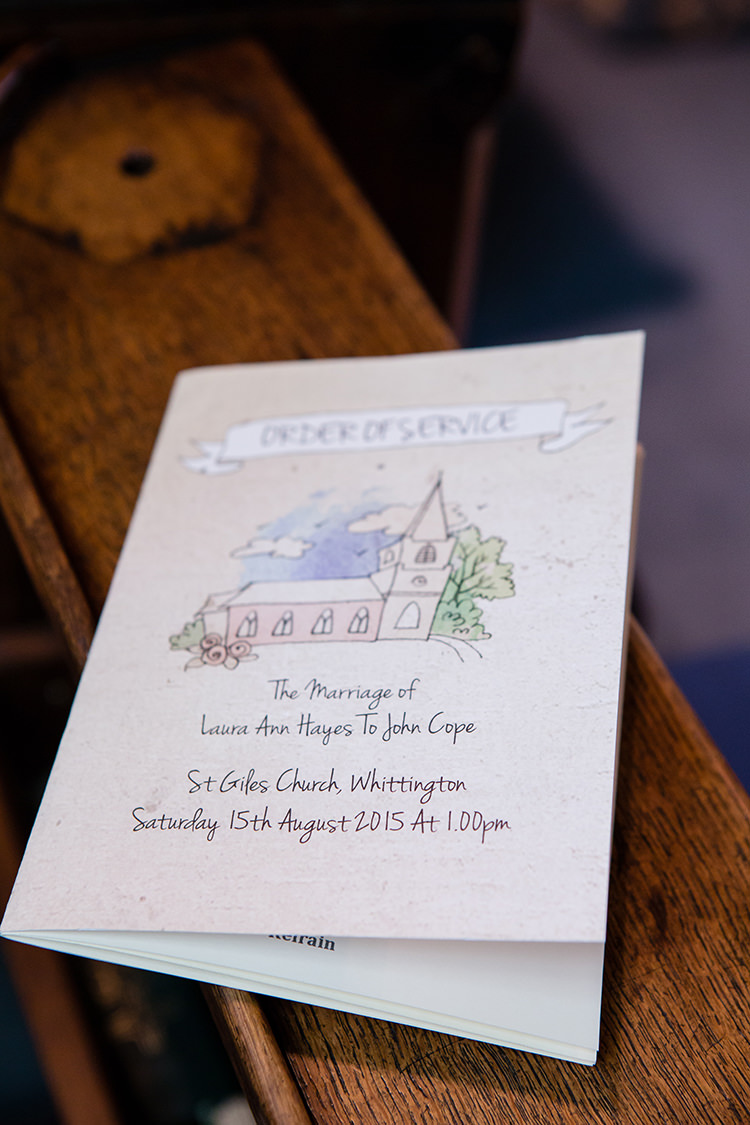 ORDER OF SERVICE
The Marriage of
Laura Ann Hayes To John Cope
St Giles Church, Whittington
Saturday 15th August 2015 At 1.00pm
Refrain